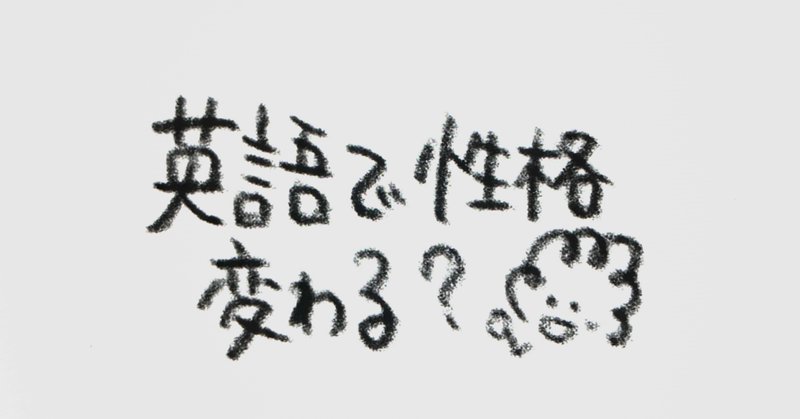 英語で性格
変わる?